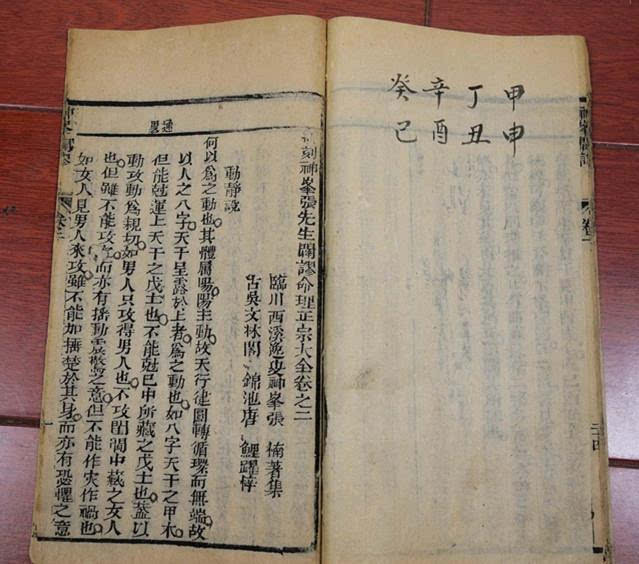 甲申
丁丑
辛酉
癸巳
刻神峯張先生闢謬命理正宗大全卷之二
臨川西溪逸叟神峯張 楠著集
古吳文林閣 錦池唐 鯉躍梓
動靜說
何以爲之動也其體屬陽陽主動故天行健圓轉循環而無端故
以人之八字天干呈露於上者爲之動也如八字天干之甲木
但能尅運上天干之戊土也不能尅巳中所藏之戊土也葢以
動攻動爲親切如男人只攻得男人也不攻閨閫中藏之女人
也但雖不能攻之而亦有搖動震驚之意但不能作灾作禍也
如女人見男人來攻雖不能加捶楚於其身而亦有恐懼之意